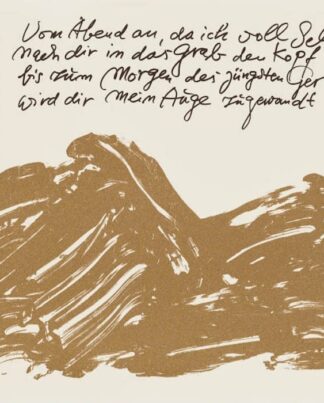 Vom Abend an, da ich voll Seh
nach dir in das Grab den Kopf
bis zum Morgen des jüngsten Ger
wird dir mein Auge zugewandt